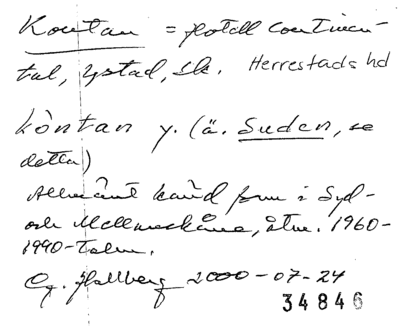 Kontan = Hotell Continen-
tal, Ystad, Sk. Herrestads hd
kòntan y. (ä. Suden, se
detta)
Allmänt känd form i Syd-
och Mellanskåne, åtm. 1960-
1990-talen.
Gg. Hallberg 2000-07-24
34846